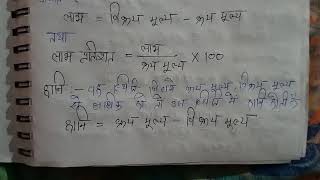 लाभ = विक्रय मूल्य - क्रय मूल्य
तथा
लाभ प्रतिशत = लाभ / क्रय मूल्य × 100
हानि :- वह स्थिति जिसमे क्रय मूल्य, विक्रय मूल्य
से अधिक हो तो उस स्थिति में हानि होती है
हानि = क्रय मूल्य - विक्रय मूल्य